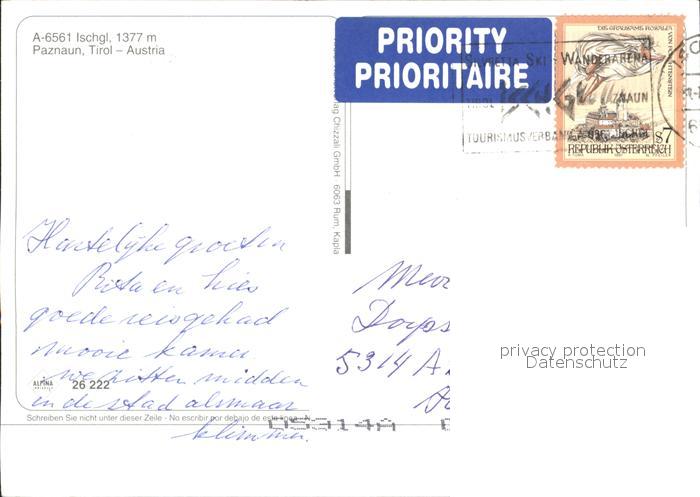 A-6561 Ischgl, 1377 m
Paznaun, Tirol – Austria
PRIORITY
PRIORITAIRE
DIE GRAUSAME ROSALIA
SKI - WANDERARENA
TIROL PAZNAUN
TOURISMUSVERBAND A-6561 ISCHGL
S 7
REPUBLIK ÖSTERREICH
Chizzali GmbH · 6063 Rum, Kapla
Hartelijke groeten
Rita en Kees
goede reis gehad
mooie kamer
we zitten midden
in de stad alsmaar
klimmen.
Mevr
Dorps
5314 A
ALPINA
26 222
Schreiben Sie nicht unter dieser Zeile - No escribir por debajo de esta linea
05314A
privacy protection
Datenschutz